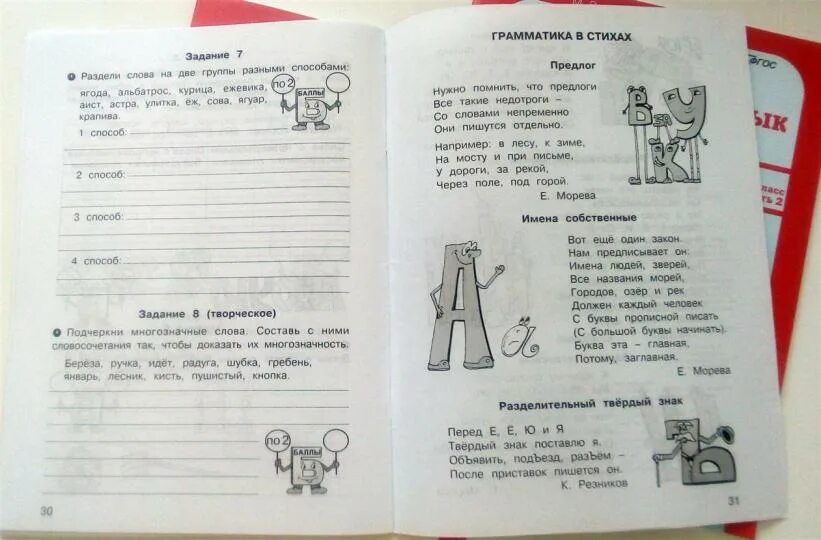 Задание 7
Раздели слова на две группы разными способами:
ягода, альбатрос, курица, ежевика,
аист, астра, улитка, ёж, сова, ягуар,
крапива.
по 2
БАЛЛЫ
Б
1 способ:
2 способ:
3 способ:
4 способ:
Задание 8 (творческое)
Подчеркни многозначные слова. Составь с ними
словосочетания так, чтобы доказать их многозначность.
Берёза, ручка, идёт, радуга, шубка, гребень,
январь, лесник, кисть, пушистый, кнопка.
по 2
БАЛЛЫ
Б
30
ГРАММАТИКА В СТИХАХ
Предлог
Нужно помнить, что предлоги
Все такие недотроги –
Со словами непременно
Они пишутся отдельно.
Например: в лесу, к зиме,
На мосту и при письме,
У дороги, за рекой,
Через поле, под горой.
Е. Морева
В
У
К
Имена собственные
Вот ещё один закон.
Нам предписывает он:
Имена людей, зверей,
Все названия морей,
Городов, озёр и рек
Должен каждый человек
С буквы прописной писать
(С большой буквы начинать).
Буква эта – главная,
Потому, заглавная.
Е. Морева
А
а
Разделительный твёрдый знак
Перед Е, Ё, Ю и Я
Твёрдый знак поставлю я.
ОбЪявить, подЪезд, разЪём –
После приставок пишется он.
К. Резников
Ъ
31
ФГОС
ЫК
класс
ть 2